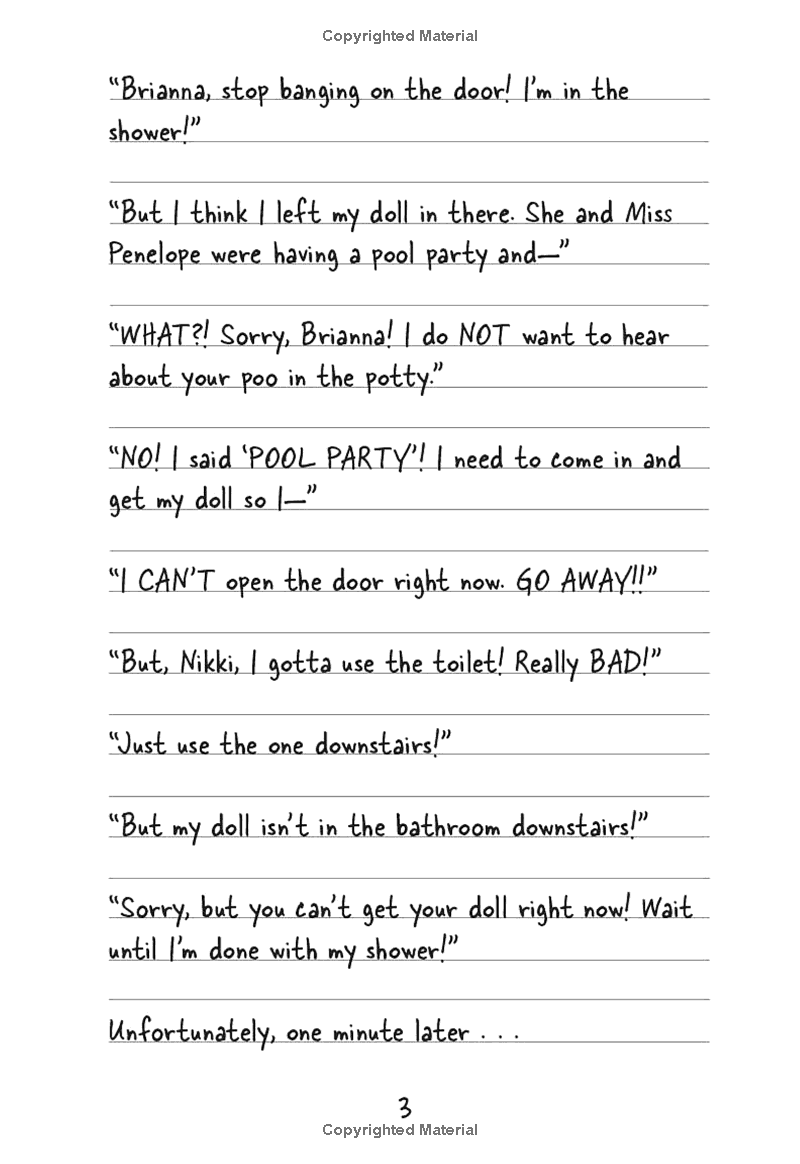 Copyrighted Material
“Brianna, stop banging on the door! I’m in the
shower!”
“But I think I left my doll in there. She and Miss
Penelope were having a pool party and—”
“WHAT?! Sorry, Brianna! I do NOT want to hear
about your poo in the potty.”
“NO! I said ‘POOL PARTY’! I need to come in and
get my doll so I—”
“I CAN’T open the door right now. GO AWAY!!”
“But, Nikki, I gotta use the toilet! Really BAD!”
“Just use the one downstairs!”
“But my doll isn’t in the bathroom downstairs!”
“Sorry, but you can’t get your doll right now! Wait
until I’m done with my shower!”
Unfortunately, one minute later . . .
3
Copyrighted Material